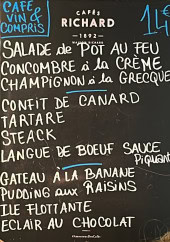 CAFÉ
VIN &
COMPRIS
CAFÉS
RICHARD
1892
14€
SALADE de POT AU FEU
CONCOMBRE à la CRÈME
CHAMPIGNON à la GRECQUE
CONFIT DE CANARD
TARTARE
STEACK
LANGUE DE BOEUF SAUCE
PIQUANTE
GATEAU À LA BANANE
PUDDING aux RAISINS
ILE FLOTTANTE
ECLAIR AU CHOCOLAT